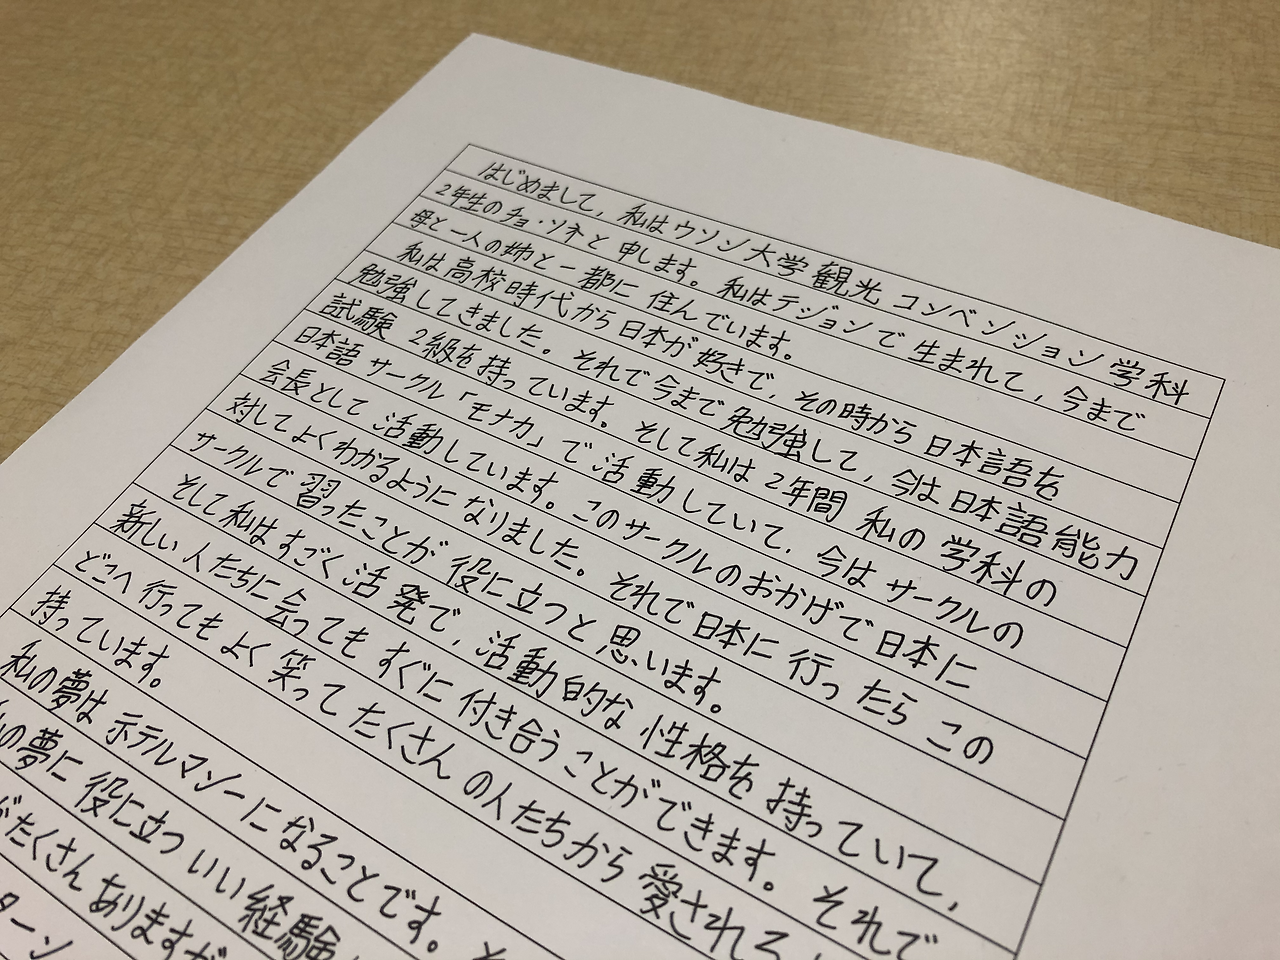 はじめまして, 私はウソン大学 観光 コンベンション 学科
2年生の チョ・ソネと 申します。私はテジョンで 生まれて, 今まで
母と 一人の 姉と 一都に 住んでいます。
私は 高校時代から 日本が 好きで, その時から 日本語を
勉強してきました。それで 今まで 勉強して, 今は 日本語能力
試験 2級を 持っています。そして私は 2年間 私の 学科の
日本語 サークル「モナカ」で 活動していて, 今は サークルの
会長として 活動しています。このサークルのおかげで 日本に
対して よくわかるようになりました。それで 日本に 行ったら この
サークルで 習ったことが 役に立つと 思います。
そして 私は すごく 活発で, 活動的な 性格を 持っていて,
新しい 人たちに 会っても すぐに 付き合うことができます。それで
どこへ 行っても よく 笑って たくさん の人たちから 愛される
持っています。
私の夢は ホテルマンーになることです。そ
の夢に 役に立つ いい経験
がたくさん ありますが
ターン